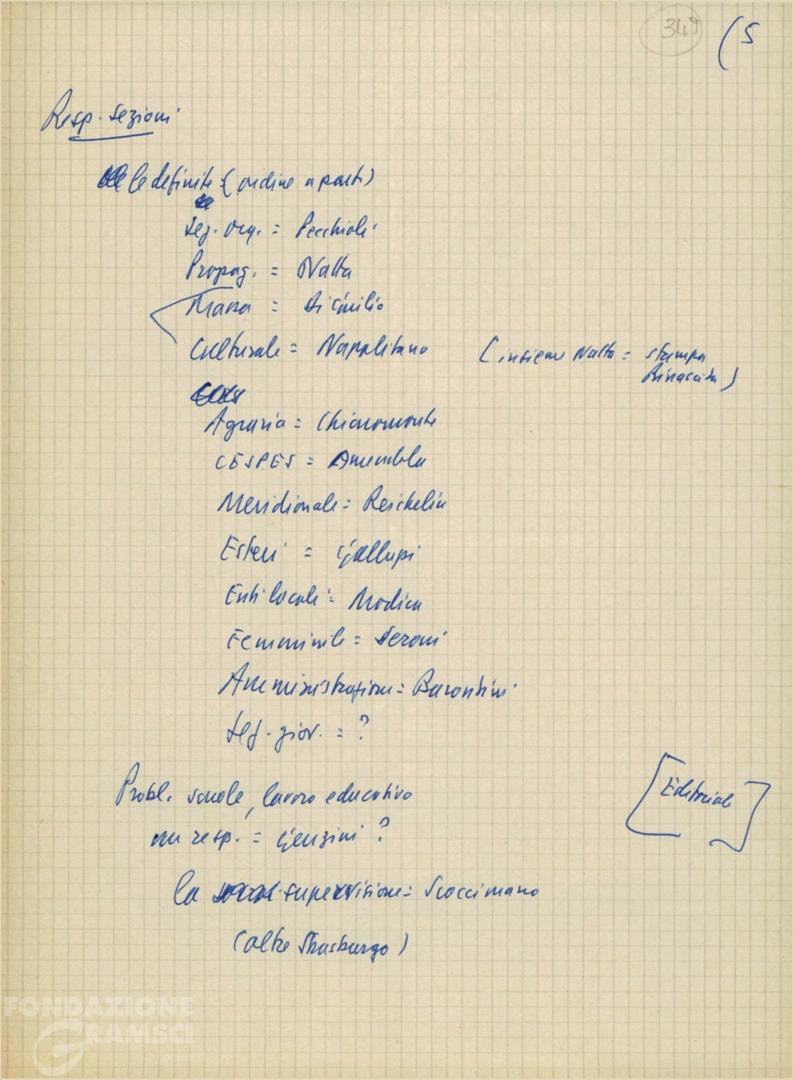 349 (5
Resp. Sezioni
le definite (ordine a parte)
Sez. Org. = Pecchioli
Propag. = Natta
Massa = Di Giulio
Culturale = Napolitano (insieme Natta = stampa
Rinascita)
Agraria = Chiaromonte
CESPES = Amendola
Meridionale = Reichelin
Esteri = Galluppi
Enti locali = Modica
Femminile = Seroni
Amministrazione = Barontini
Sez. giov. = ?
Probl. scuole, lavoro educativo [Editoriale]
un resp. = Gensini ?
la supervisione = Scoccimarro
(oltre Strasburgo)
FONDAZIONE
GRAMSCI